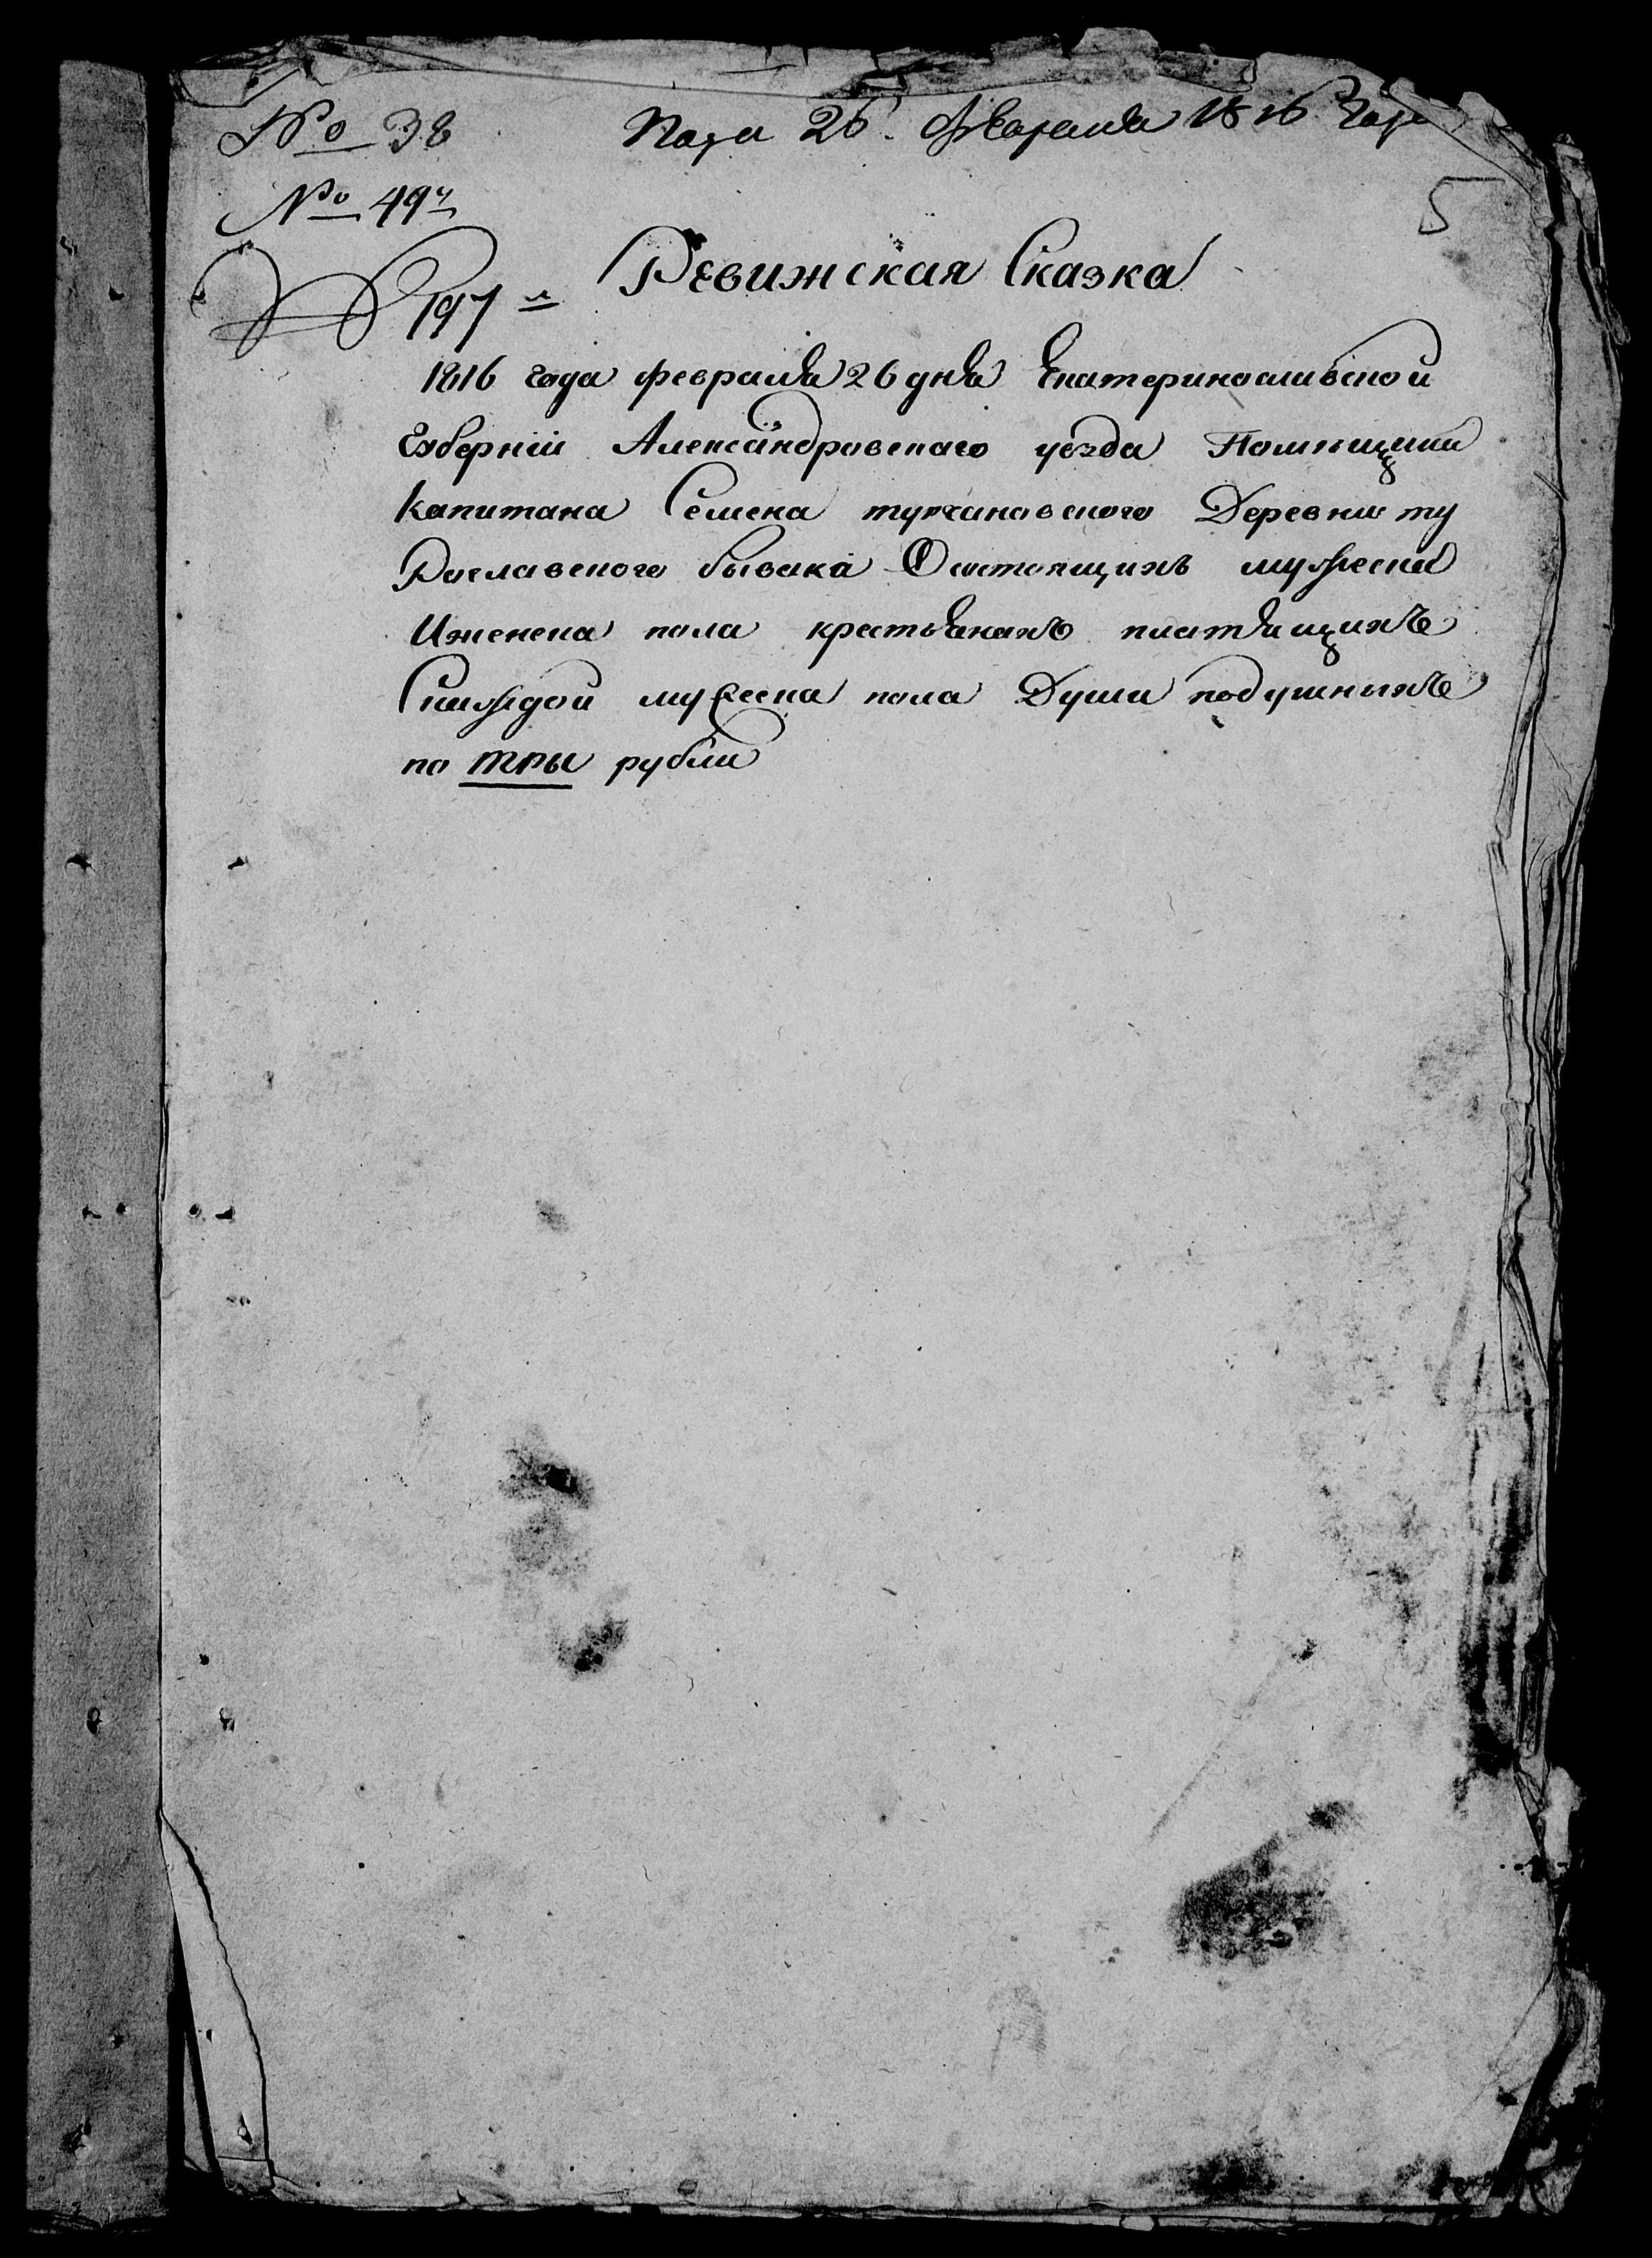 № 38
Пода 26. Февраля 1816 года
№ 49й
5
197
Ревижская Сказка
1816 года февраля 26 дня Екатеринославской
Губерніи Александровскаго уезда Помещика
капитана Семена турчиновского Деревни ту
Рославского бывака О состоящихъ мужеска
Иженска пола крестьянахъ платящихъ
Скаждой мужеска пола Души подушныхъ
по тры рубли